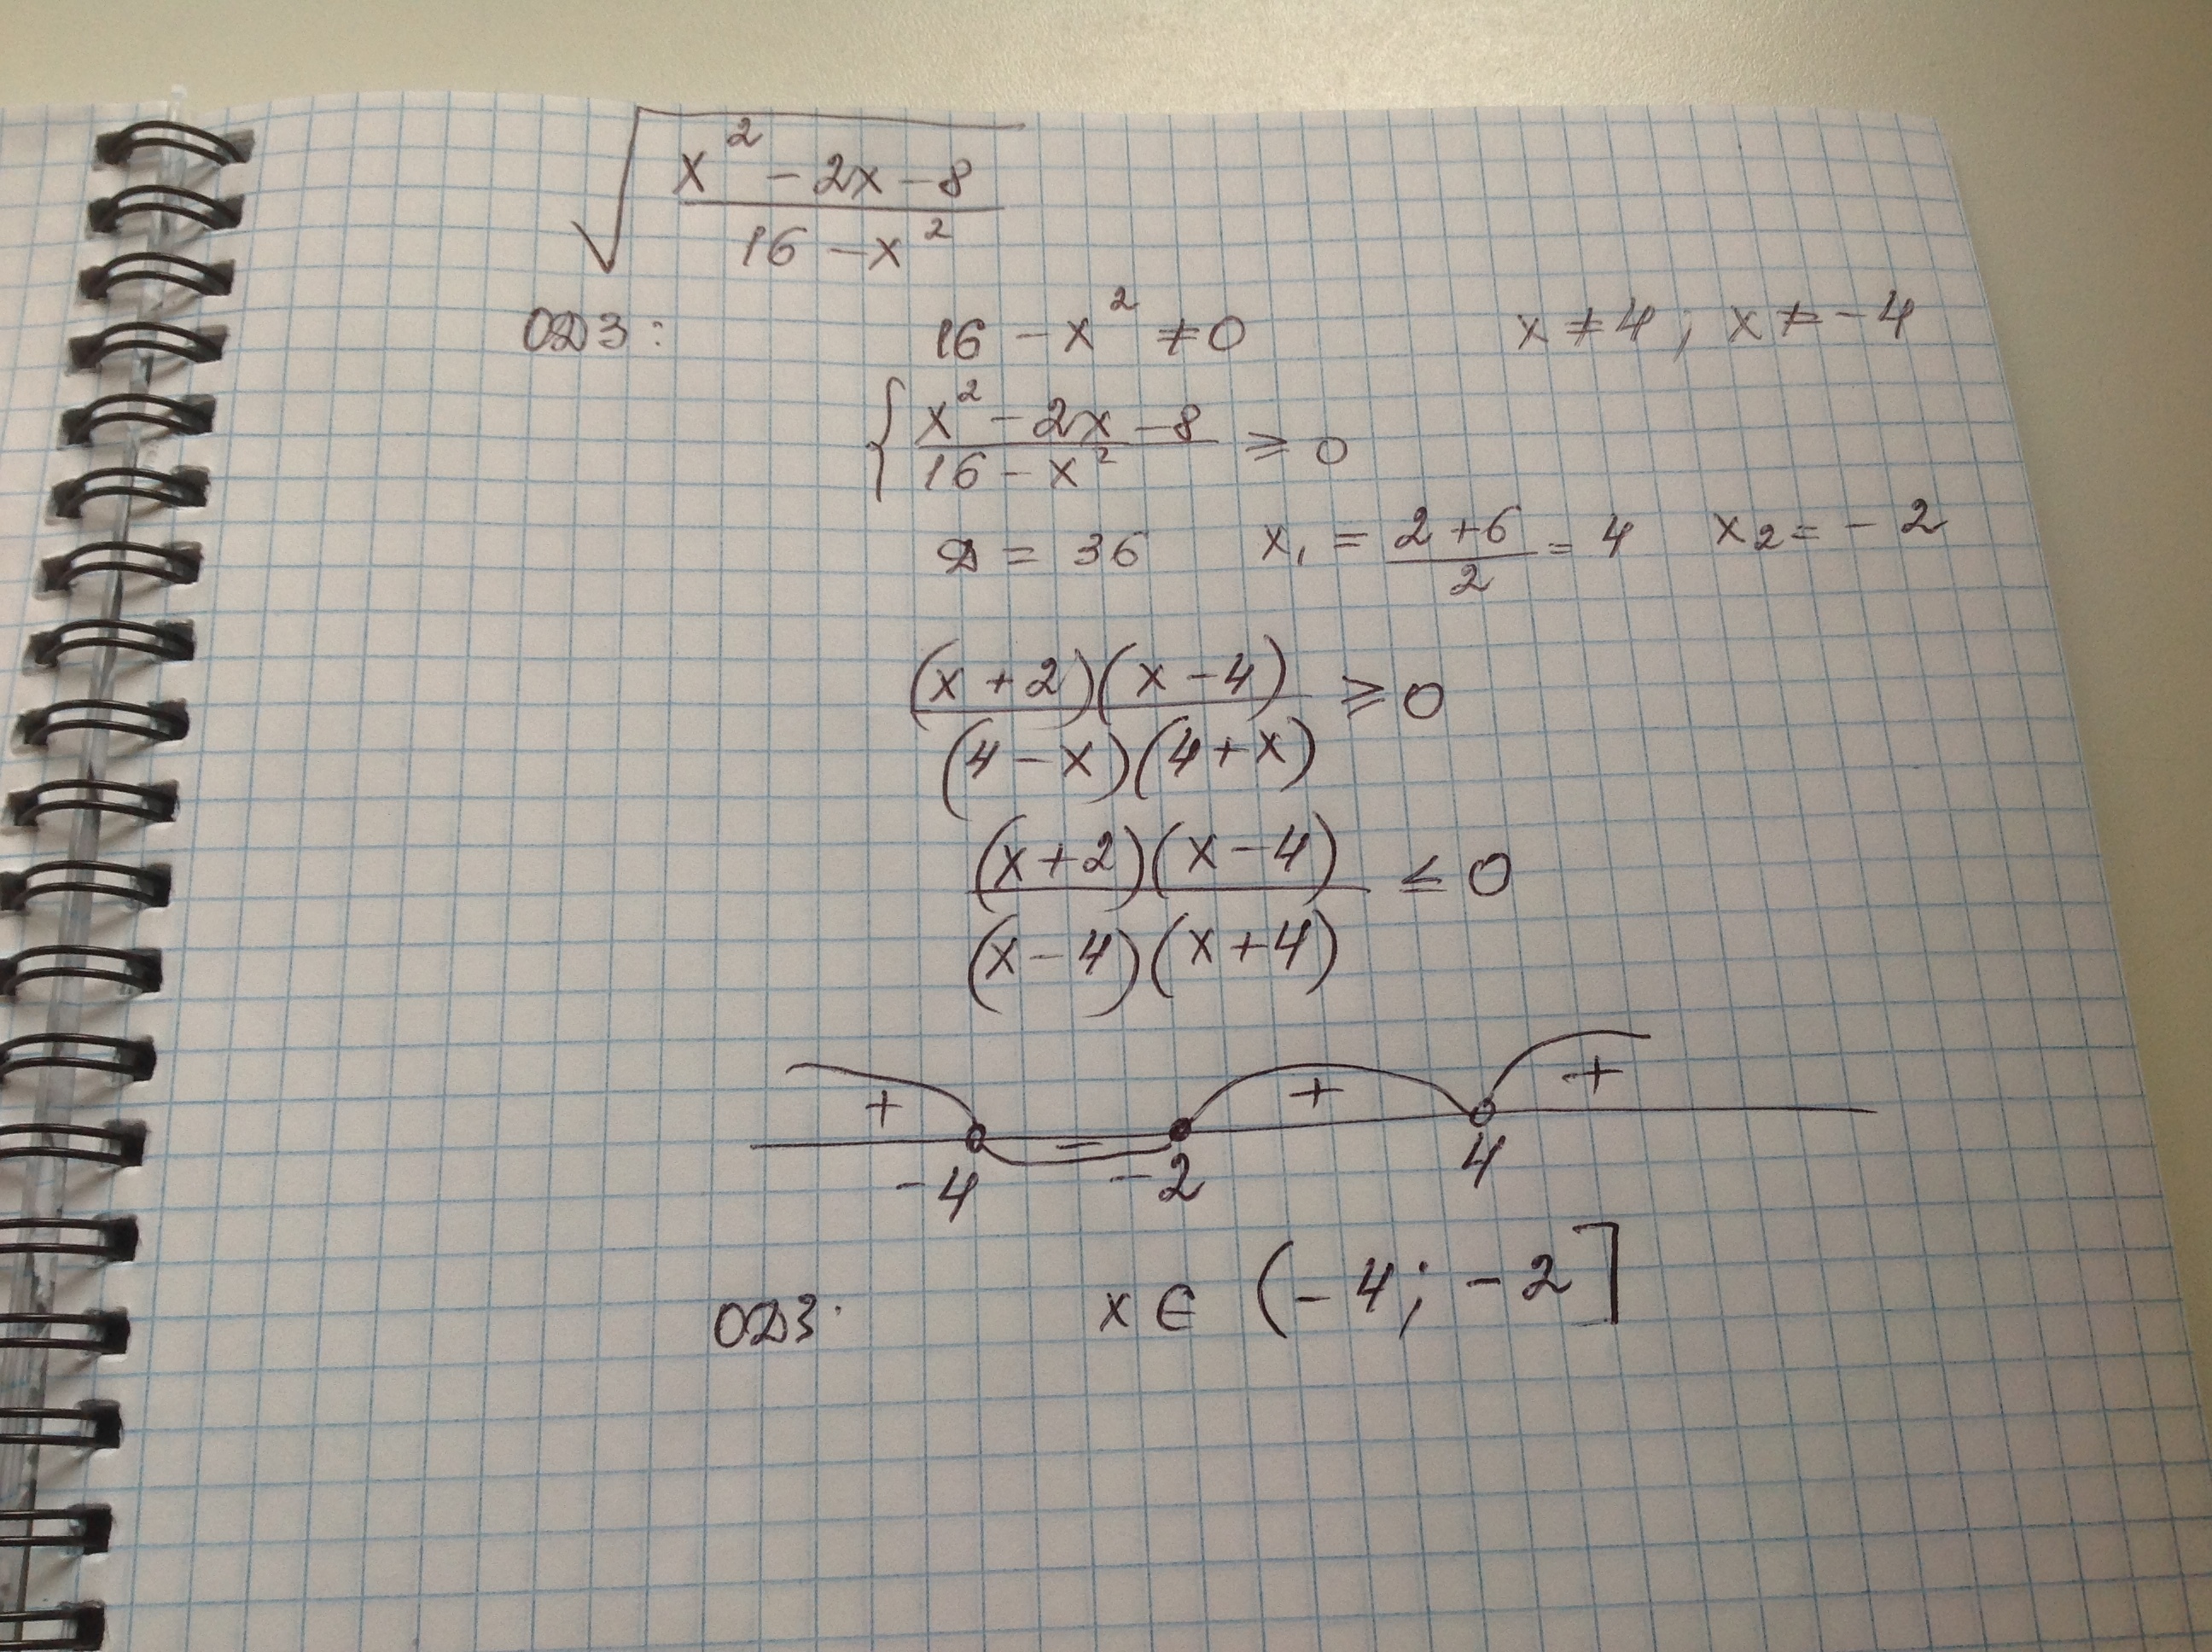 √((x² - 2x - 8)/(16 - x²))
ОДЗ: 16 - x² ≠ 0 x ≠ 4; x ≠ -4
{ (x² - 2x - 8)/(16 - x²) ≥ 0
Д = 36 x₁ = (2 + 6)/2 = 4 x₂ = -2
(x + 2)(x - 4)/(4 - x)(4 + x) ≥ 0
(x + 2)(x - 4)/(x - 4)(x + 4) ≤ 0
+ - + +
-4 -2 4
ОДЗ: x ∈ (-4; -2]